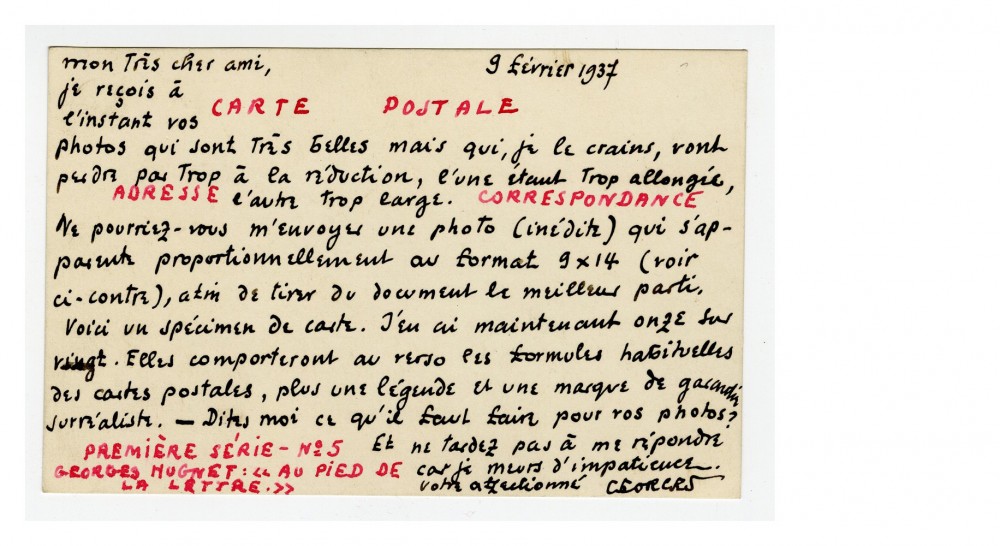 mon Très cher ami, 9 février 1937
je reçois à
l'instant vos CARTE POSTALE
photos qui sont Très belles mais qui, je le crains, vont
perdre par Trop à la réduction, l'une étant Trop allongée,
ADRESSE l'autre Trop large. CORRESPONDANCE
Ne pourriez-vous m'envoyer une photo (inédite) qui s'ap-
parente proportionnellement au format 9x14 (voir
ci-contre), afin de tirer du document le meilleur parti.
Voici un spécimen de carte. J'en ai maintenant onze sur
vingt. Elles comporteront au verso les formules habituelles
des cartes postales, plus une légende et une marque de garantie
surréaliste. — Dites moi ce qu'il faut faire pour vos photos?
PREMIÈRE SÉRIE - No 5 Et ne tardez pas à me répondre
GEORGES HUGNET: << AU PIED DE car je meurs d'impatience.
LA LETTRE. >> votre affectionné GEORGES